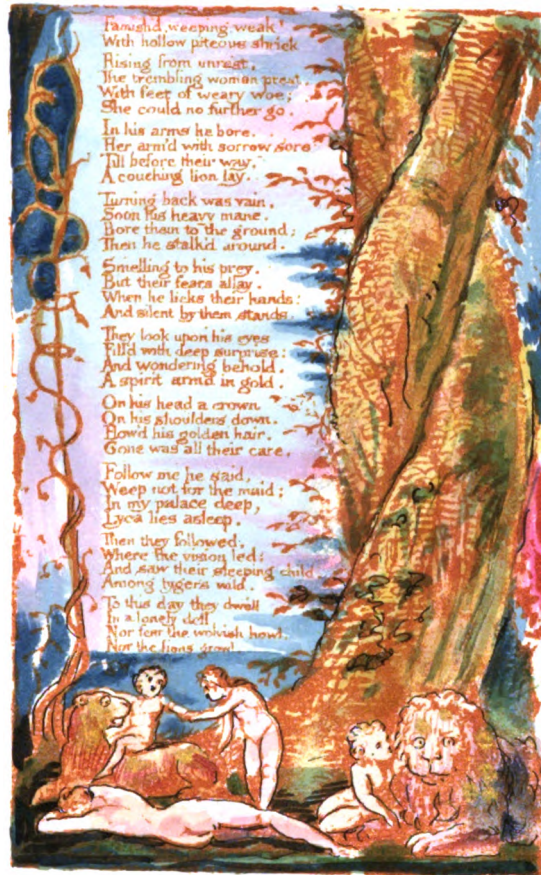 Famish'd, weeping, weak!
With hollow piteous shriek
Rising from unrest,
The trembling woman prest,
With feet of weary woe;
She could no further go.
In his arms he bore.
Her arm'd with sorrow sore
Till before their way,
A couching lion lay.
Turning back was vain,
Soon his heavy mane,
Bore them to the ground;
Then he stalk'd around.
Smelling to his prey.
But their fears allay,
When he licks their hands:
And silent by them stands.
They look upon his eyes
Fill'd with deep surprise:
And wondering behold,
A spirit arm'd in gold.
On his head a crown
On his shoulders down,
Flow'd his golden hair.
Gone was all their care.
Follow me he said,
Weep not for the maid;
In my palace deep,
Lyca lies asleep.
Then they followed,
Where the vision led:
And saw their sleeping child,
Among tygers wild.
To this day they dwell
In a lonely dell
Nor fear the wolvish howl,
Nor the lions growl